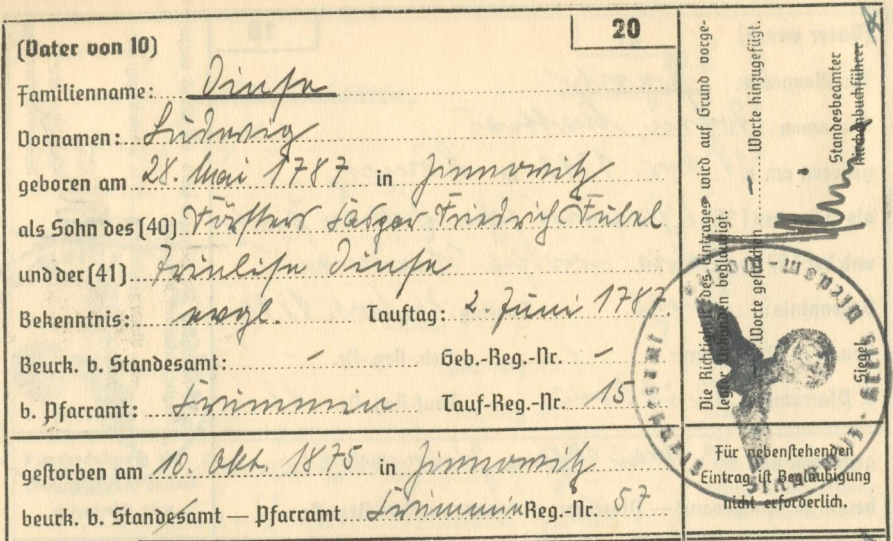 20
(Vater von 10)
Familienname: Dinse
Vornamen: Ludwig
geboren am 28. Mai 1787 in Zinnowitz
als Sohn des (40) Försters Caspar Friedrich Fubel
und der (41) Dinse
Bekenntnis: evgl. Tauftag: 2. Juni 1787
Beurk. b. Standesamt: – Geb.-Reg.-Nr. –
b. Pfarramt: Krummin Tauf-Reg.-Nr. 15
gestorben am 10. Okt. 1875 in Zinnowitz
beurk. b. Standesamt — Pfarramt Krummin Reg.-Nr. 57
Die Richtigkeit des Eintrages wird auf Grund vorge-
legter Urkunden beglaubigt.
— Worte gestrichen — Worte hinzugefügt.
Standesbeamter
Kirchenbuchführer
Siegel
Für nebenstehenden
Eintrag ist Beglaubigung
nicht erforderlich.